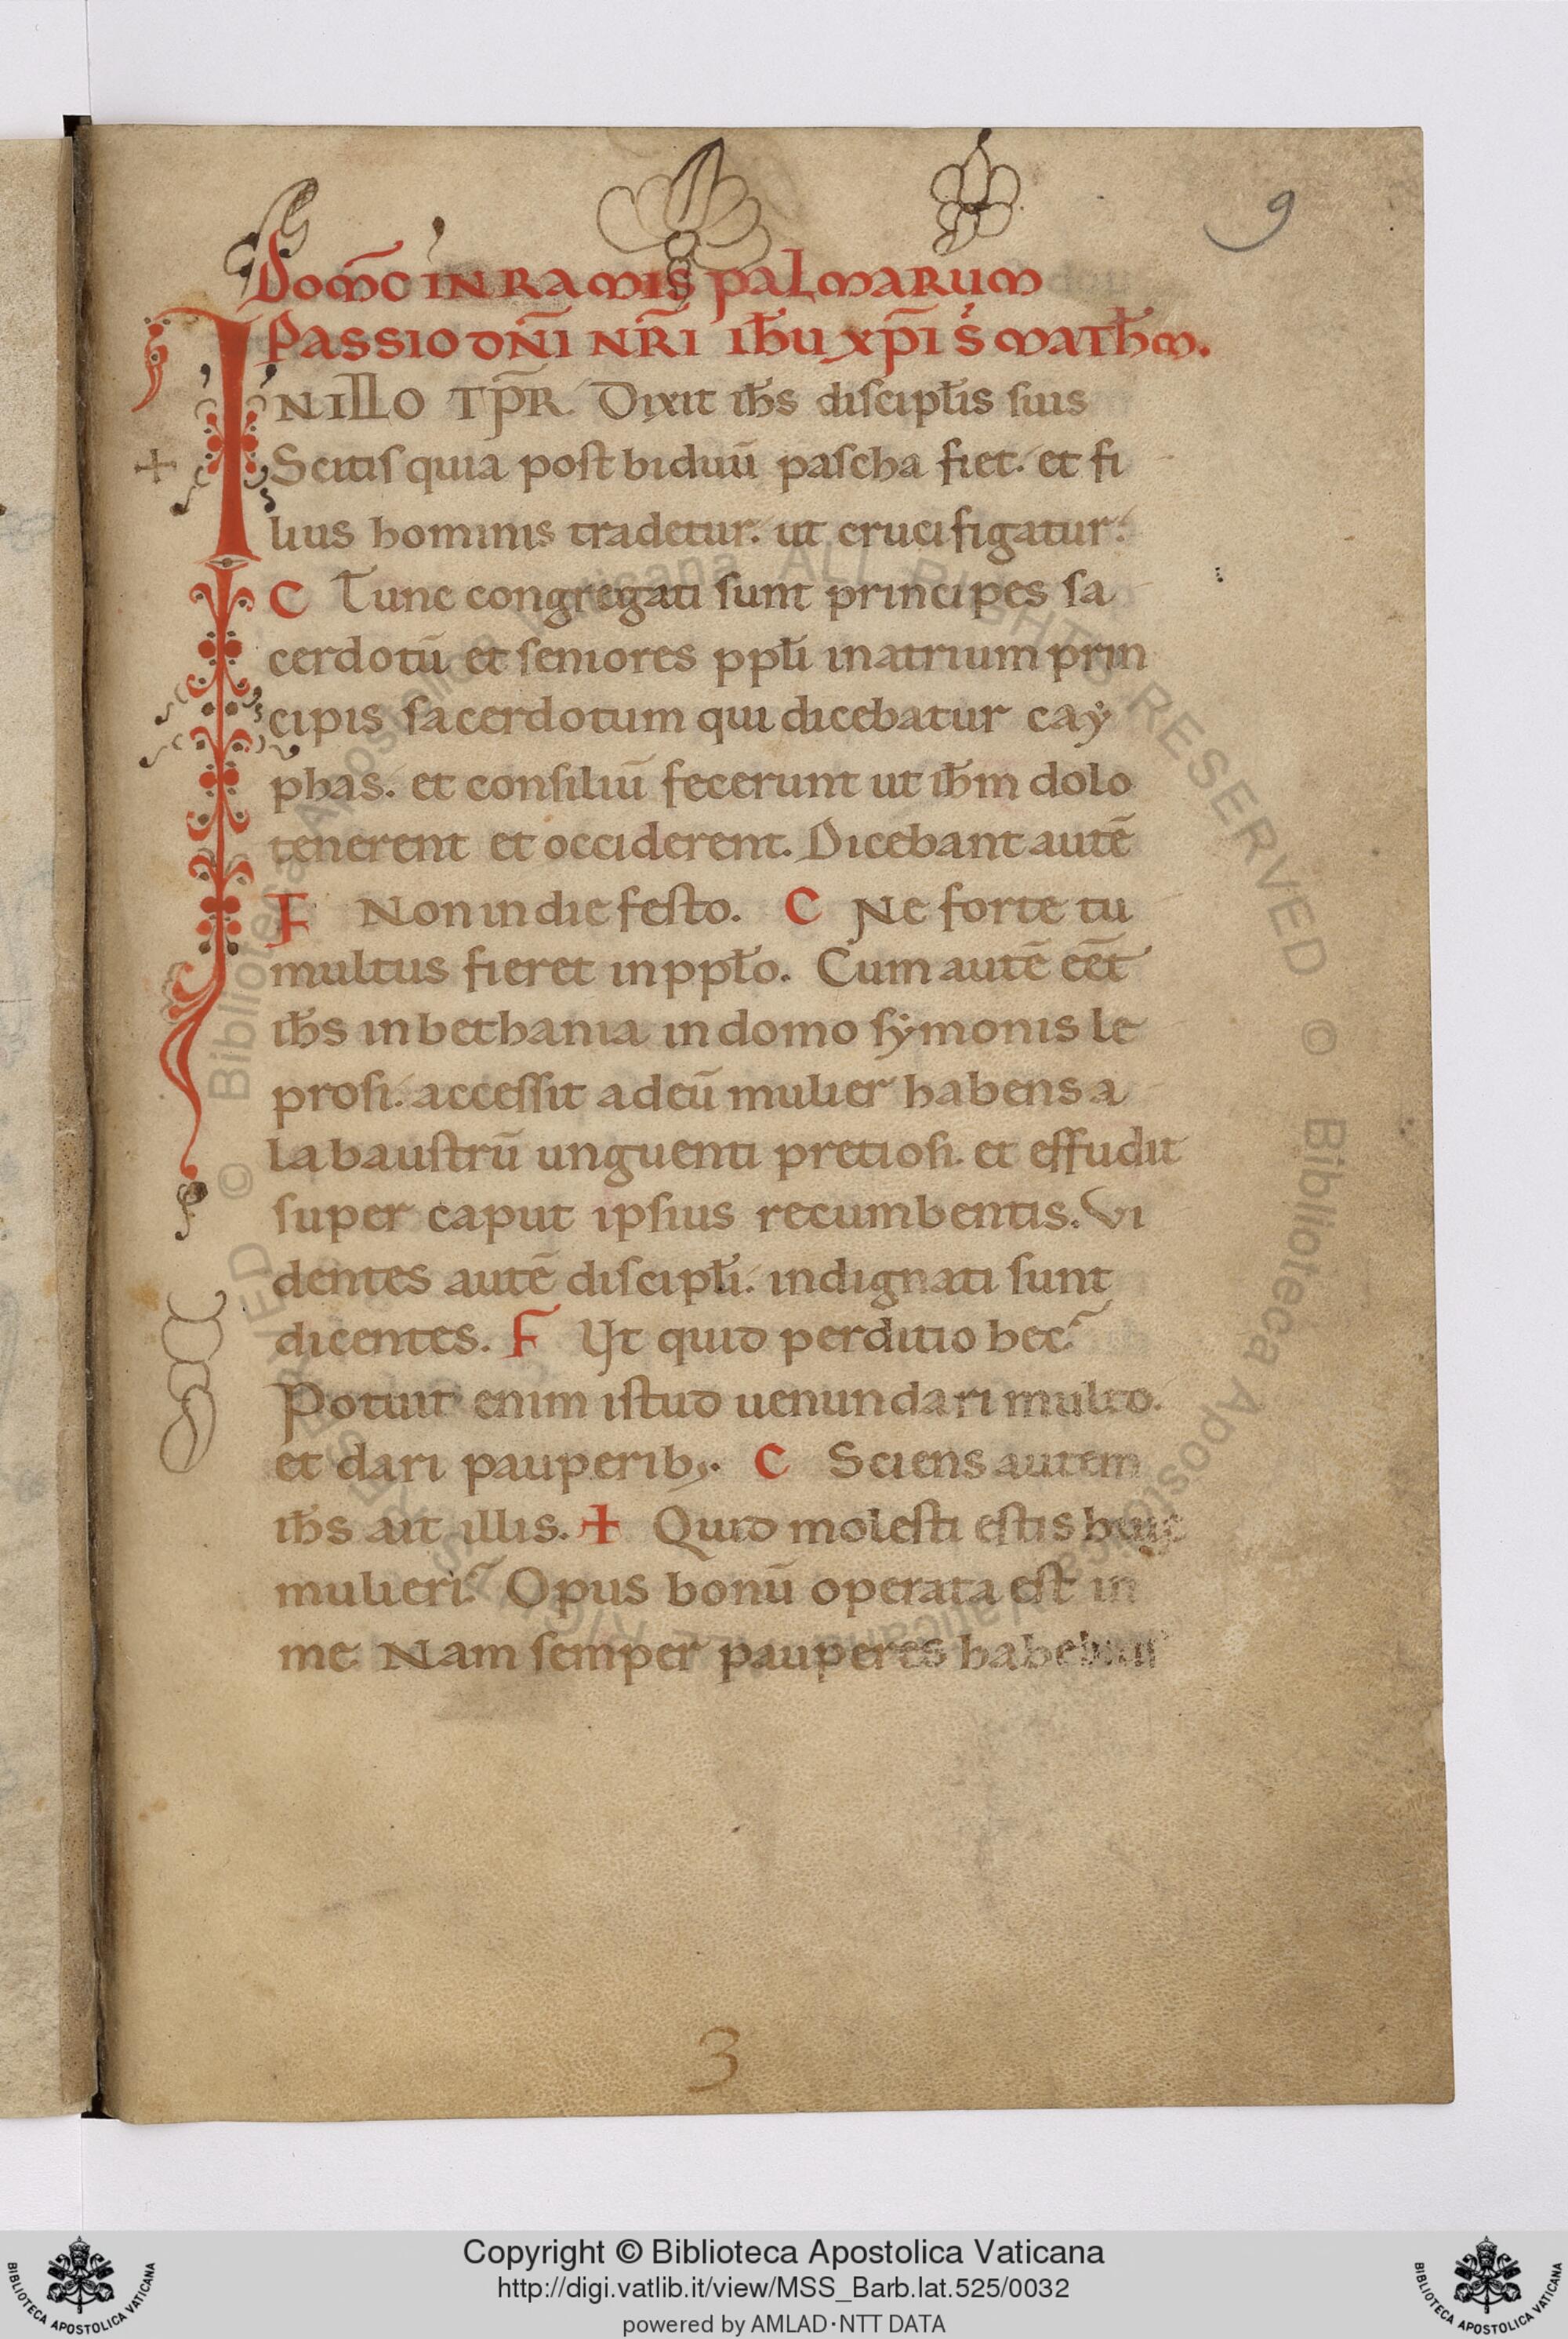 9
Domc̄ IN RAMIS PALMARUM
PASSIO DN̄I NR̄I IħU XP̄I S̄ MATħM.
INILLO TP̄R. Dixit ih̄s discipłis suis
Scitis quia post biduū pascha fiet. et fi
lius hominis tradetur. ut crucifigatur.
C Tunc congregati sunt principes sa
cerdotū et seniores ppłi inatrium prin
cipis sacerdotum qui dicebatur caẏ
phas. et consiliū fecerunt ut ih̄m dolo
tenerent et occiderent. Dicebant autē
F Non in die festo. C Ne forte tu
multus fieret in ppło. Cum autē eēt
ih̄s in bethania in domo sẏmonis le
prosi. accessit ad eū mulier habens a
labaustrū unguenti pretiosi. et effudit
super caput ipsius recumbentis. Vi
dentes autē discipłi. indignati sunt
dicentes. F Ut quid perditio hec?
Potuit enim istud uenundari multo.
et dari pauperib;. C Sciens autem
ih̄s ait illis. + Quid molesti estis huic
mulieri? Opus bonū operata est in
me. Nam semper pauperes
3
© Biblioteca Apostolica Vaticana ALL RIGHTS RESERVED
Copyright © Biblioteca Apostolica Vaticana
http://digi.vatlib.it/view/MSS_Barb.lat.525/0032
powered by AMLAD·NTT DATA
BIBLIOTECA APOSTOLICA VATICANA
BIBLIOTECA APOSTOLICA VATICANA